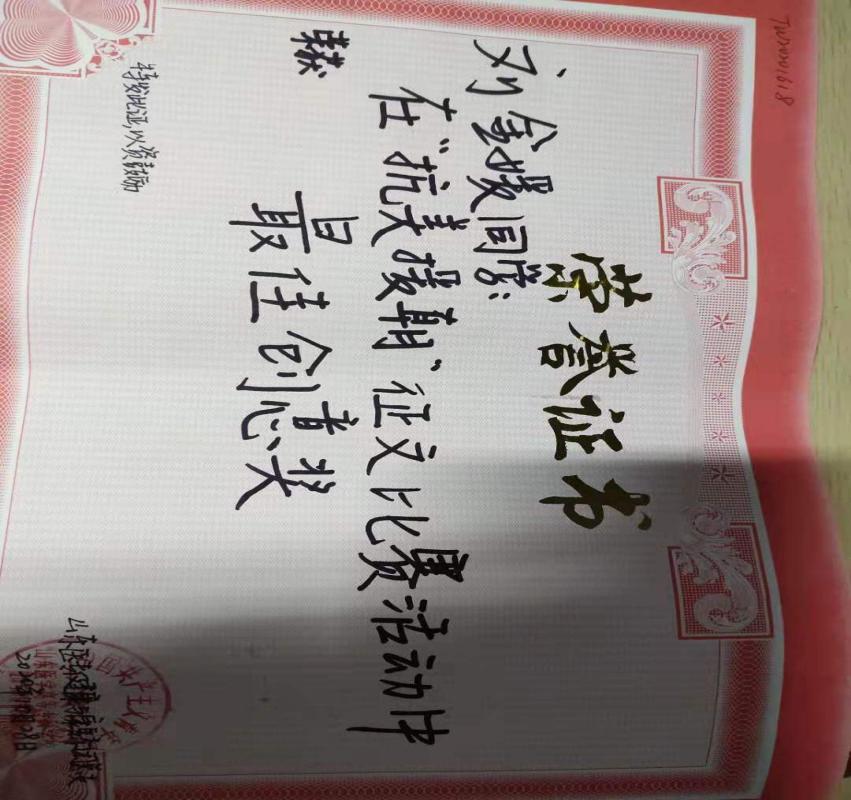 荣誉证书
刘金媛同学：
在“抗美援朝”征文比赛活动中
荣获
最佳创意奖
特发此证，以资鼓励
2020年10月28日